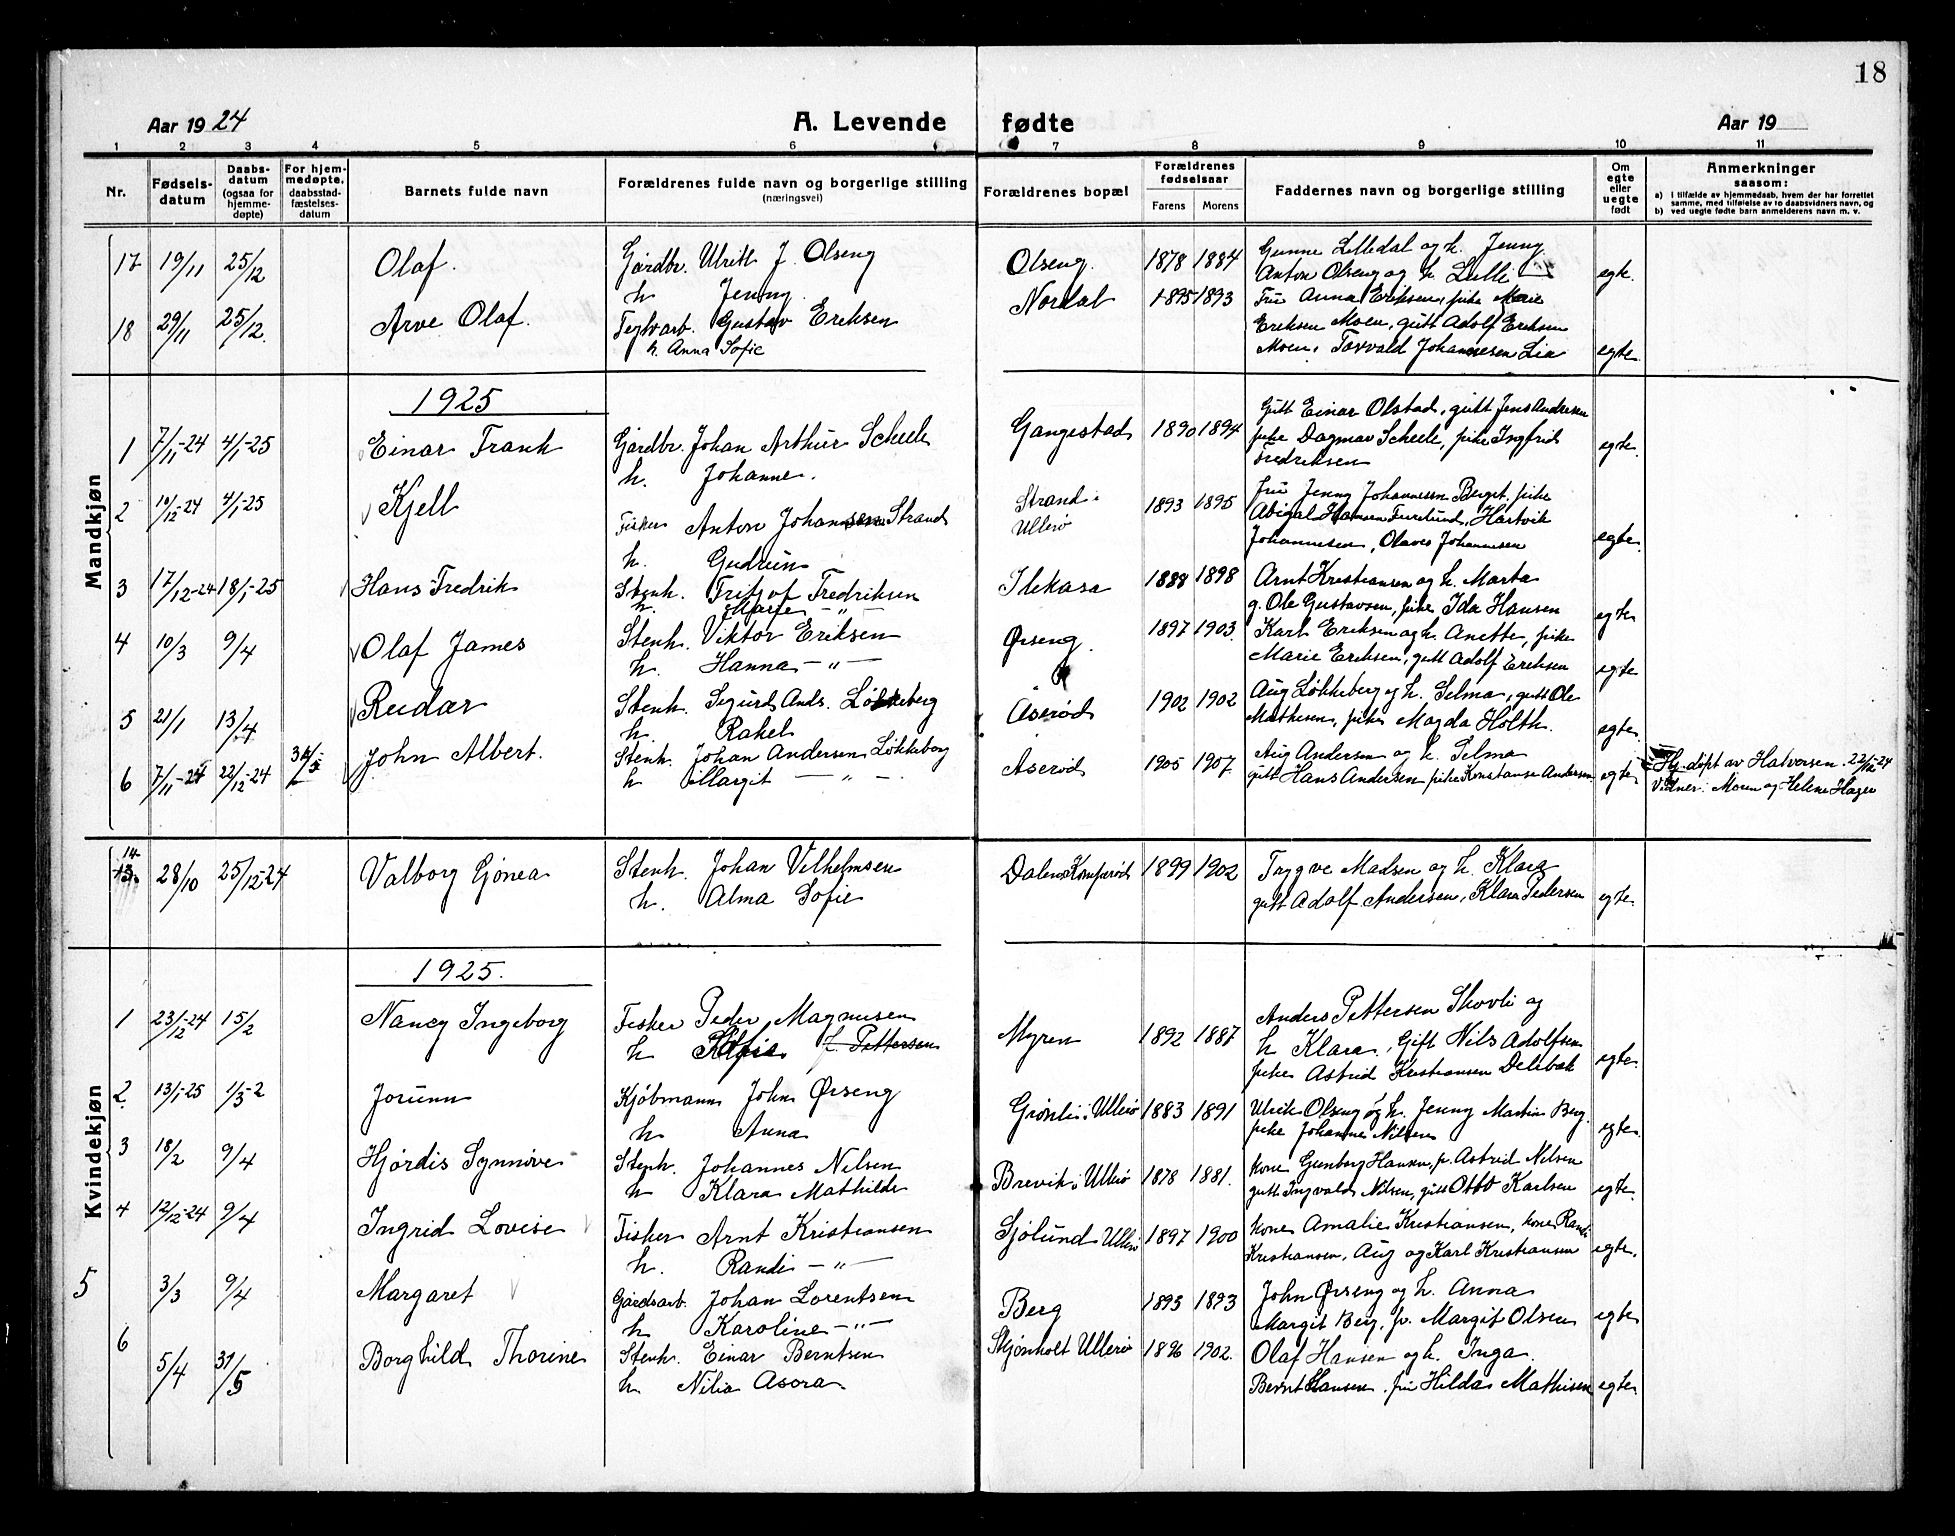 18
Aar 1924 A. Levende fødte Aar 19
1 2 3 4 5 6 7 8 9 10 11
Nr. Fødsels-datum Daabs-datum (ogsaa for hjemme-døpte) For hjem-medøpte, daabsstad-fæstelses-datum Barnets fulde navn Forældrenes fulde navn og borgerlige stilling (næringsvei) Forældrenes bopæl Forældrenes fødselsaar Farens Morens Faddernes navn og borgerlige stilling Om egte eller uegte født Anmerkninger saasom: a) i tilfælde av hjemmedaab, hvem der har forrettet samme, med tilføielse av to daabsvidners navn, og b) ved uegte fødte barn anmelderens navn m. v.
Mandkjøn
17 19/11 25/12 Olaf. Gårdbr. Ulrik J. Olseng Olseng. 1878 1884 Gunne Lilledal og h. Jenny
h Jenny. Anton Olseng og h Lilli egte.
18 29/11 25/12. Arve Olaf. Teglvarb. Gustav Eriksen Nordal 1895 1893 Fru Anna Eriksen, pike Marie
h. Anna Sofie Eriksen Moen, gutt Adolf Eriksen
Moen, Torvald Johannesen Lia egte.
1925
1 7/11-24 4/1-25 Einar Frank Gårdbr. Johan Arthur Scheele Gangestad 1890 1894 Gutt Einar Olstad, gutt Jens Andersen
h. Johanne. pike Dagmar Scheele, pike Ingfrid egte.
Fredriksen
2 10/12-24 4/1-25 Kjell Fisker Anton Johansen Strand Strand i Ullerø 1893 1895 fru Jenny Johannesen Berget, pike
h. Gudrun Abigal Hansen Furulund, Hartvik
Johannesen, Olaves Johannesen egte.
3 17/12-24 18/1-25 Hans Fredrik Stenh. Fritjof Fredriksen Ilekasa 1888 1898 Arnt Kristiansen og h. Marta
h. Marie - " - g. Ole Gustavsen, pike Ida Hansen egte
4 10/3 9/4 Olaf James Stenh. Viktor Eriksen Ørseng. 1897 1903. Karl Eriksen og h. Anette, pike
h. Hanna - " - Marie Eriksen, gutt Adolf Eriksen egte
5 21/1 13/4 Reidar Stenh. Sigurd Ands. Løkkeberg Åserød 1902 1902 Aug Løkkeberg og h. Selma, gutt Ole
h. Rakel Mathisen, pike Magda Holth. egte.
6 7/11-24 22/12-24 31/5 John Albert. Stenh. Johan Andersen Løkkeberg Åserød 1905 1907. Aug Andersen og h. Selma Hj. døpt av Halvorsen. 22/12-24
h Margit - " - gutt Hans Andersen pike Konstanse Andersen egte Vidner: Moren og Helene Hagen
Kvindekjøn
14 28/10 25/12-24 Valborg Gjønea Stenh. Johan Vilhelmsen Dalen Komperød 1899 1902 Trygve Madsen og h. Klara
h. Alma Sofie gutt Adolf Andersen, Klara Pedersen egte.
1925.
1 23/12-24 15/2 Nancy Ingeborg Fisker Peder Magnusen Myren 1892 1887 Anders Pettersen Skovli og
h Sofie f. Pettersen h Klara, Gift Nils Adolfsen
pike Astrid Kristiansen Delebæk egte.
2. 13/1-25 1/3-2 Jorunn Kjøbmann John Ørseng Grønli i Ullerø 1883 1891 Ulrik Olseng og h. Jenny Martin Berg.
h Anna pike Johanne Nilsen egte.
3 18/2 9/4 Hjørdis Synnøve Stenh. Johannes Nilsen Brevik i Ullerø 1878 1881. kone Gunborg Hansen, p. Astrid Nilsen
h Klara Mathilde gutt Ingvald Nilsen, gutt Otto Karlsen egte.
4 12/12-24 9/4 Ingrid Lovise Fisker Arnt Kristiansen Sjølund Ullerø 1897 1900 kone Amalie Kristiansen, kone Randi
h. Randi - " - Kristiansen, Aug og Karl Kristiansen egte.
5 3/3 9/4 Margaret Gårdsarb. Johan Lorentsen Berg 1895 1893 John Ørseng og h. Anna
h Karoline - " - Margit Berg, p. Margit Olsen egte
6 5/4 31/5 Borghild Thorine Stenh. Einar Berntsen Skjønholt Ullerø 1896 1902. Olaf Hansen og h. Inga.
h. Nilia Asora. Bernt Hansen, fru Hilda Mathisen egte.